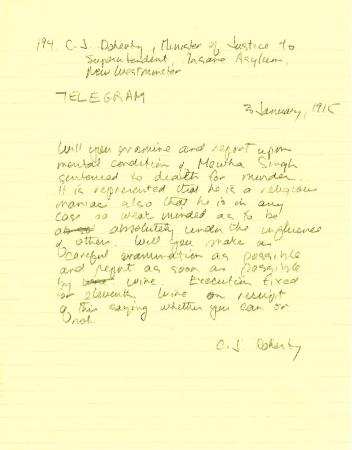 194. C. J. Doherty, Minister of Justice to
Superintendent, Insane Asylum,
New Westminster
TELEGRAM
3 January, 1915
Will you examine and report upon
mental condition of Mewha Singh
sentenced to death for murder.
It is represented that he is a religious
maniac also that he is in any
case so weak minded as to be
absolutely under the influence
of others. Will you make as
careful examination as possible
and report as soon as possible
by wire. Execution fixed
for eleventh, wire on receipt
of this saying whether you can or
not.
C. J. Doherty